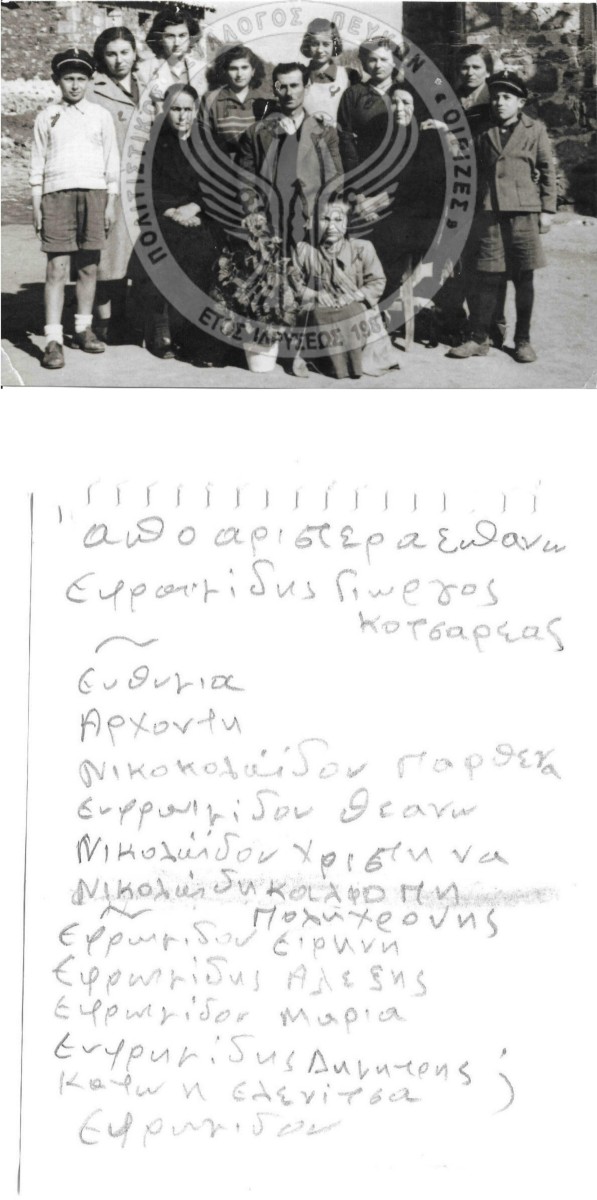 ΠΟΛΙΤΙΣΤΙΚΟΣ ΣΥΛΛΟΓΟΣ ΠΕΥΚΩΝ «ΟΙ ΡΙΖΕΣ»
ΕΤΟΣ ΙΔΡΥΣΕΩΣ 1987
απο αριστερα επανω
Εφρεμιδης Γιωργος
κοτσαρεας
~
Ευθυμια
Αρχοντη
Νικοκολαϊδου Παρθενα
Ευφρεμιδου θεανω
Νικολαϊδου χριστηνα
Νικολαϊδη καλφο πη
~ Πολυχρονης
Εφρεμιδου Ειρηνη
Εφρεμιδης Αλεξης
Εφρεμιδου μαρια
Ευφρημιδης Δημητρης
κατω η ελενιτσα
Εφρεμιδου